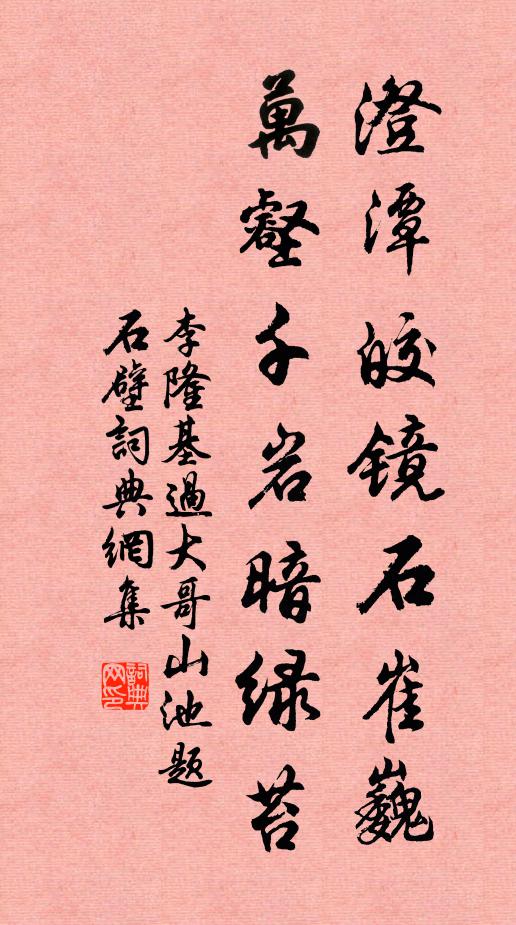 澄潭皎镜石崔巍
萬壑千岩暗绿苔
李隆基過大哥山池题
石壁詞典網集
詞典网印